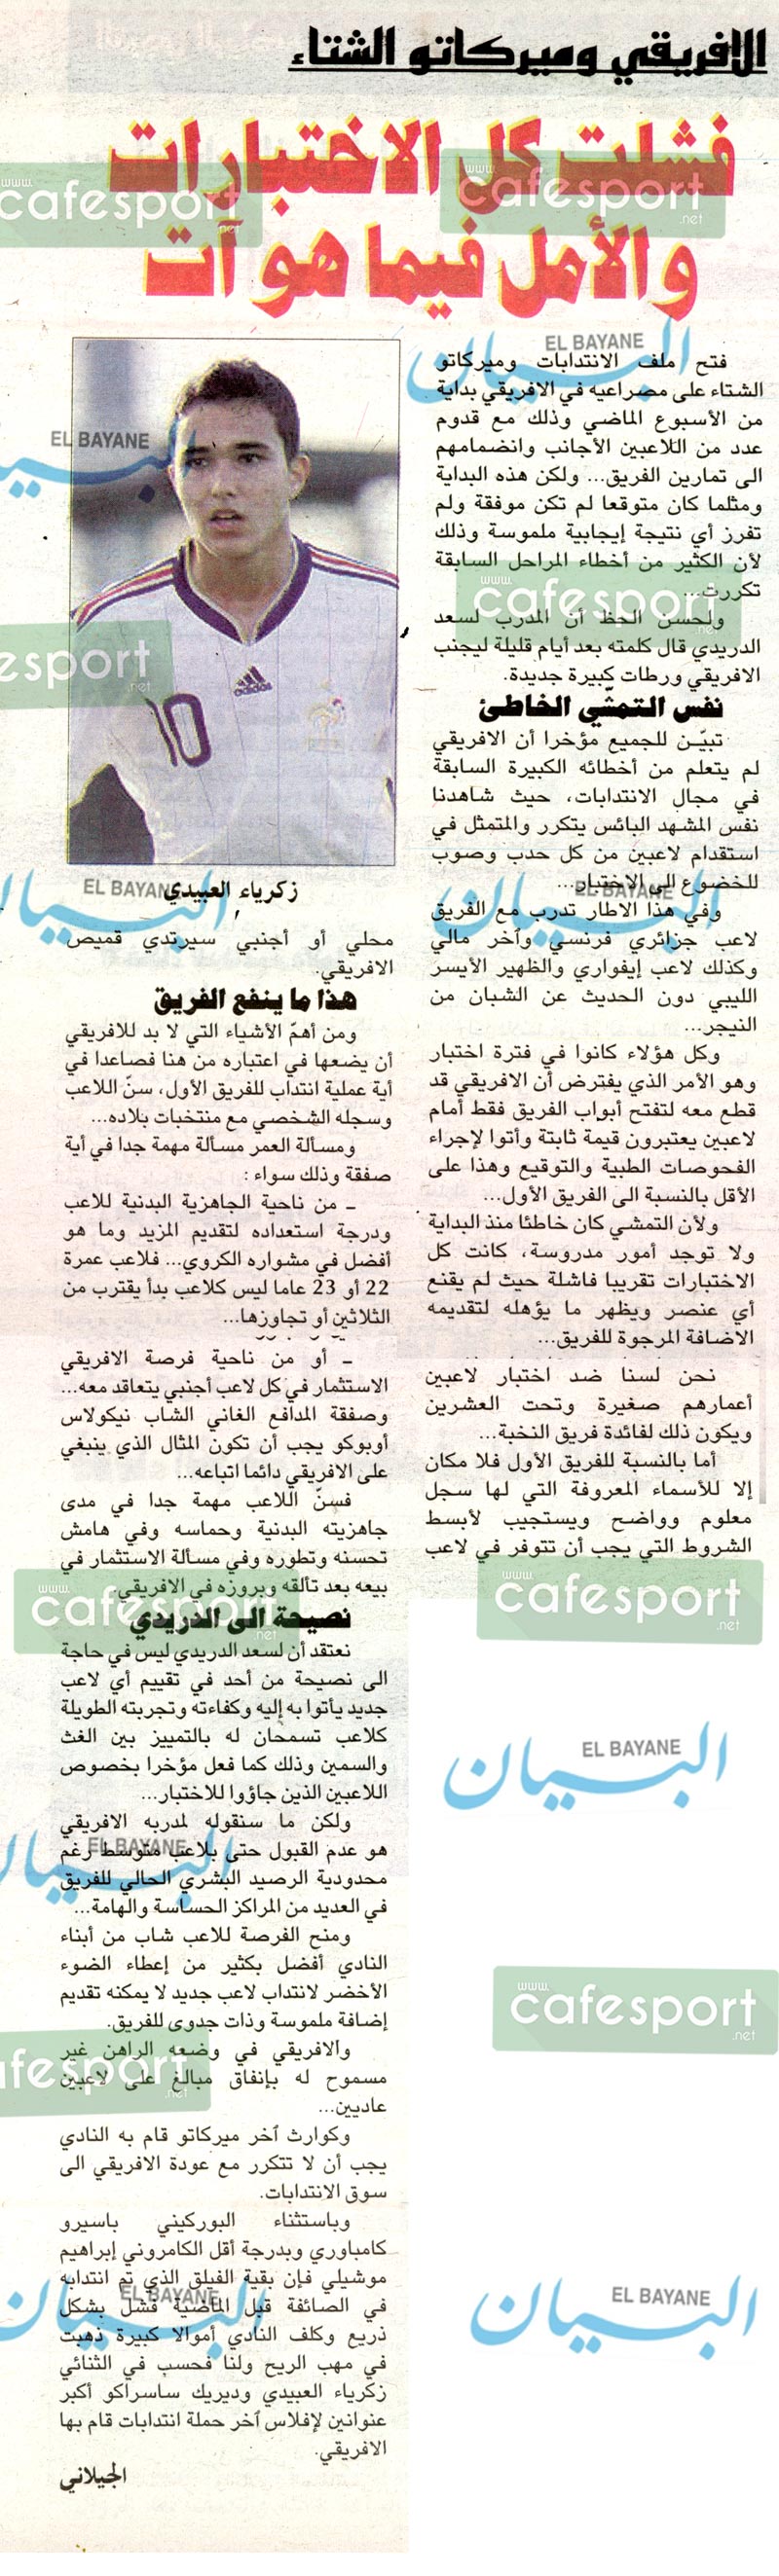 الافريقي وميركاتو الشتاء
فشلت كل الاختبارات
والأمل فيما هو آت
فتح ملف الانتدابات وميركاتو
الشتاء على مصراعيه في الافريقي بداية
من الأسبوع الماضي وذلك مع قدوم
عدد من اللاعبين الأجانب وانضمامهم
الى تمارين الفريق... ولكن هذه البداية
ومثلما كان متوقعا لم تكن موفقة ولم
تفرز أي نتيجة إيجابية ملموسة وذلك
لأن الكثير من أخطاء المراحل السابقة
تكررت...
ولحسن الحظ أن المدرب لسعد
الدريدي قال كلمته بعد أيام قليلة ليجنب
الافريقي ورطات كبيرة جديدة.
نفس التمشّي الخاطئ
تبيّن للجميع مؤخرا أن الافريقي
لم يتعلم من أخطائه الكبيرة السابقة
في مجال الانتدابات، حيث شاهدنا
نفس المشهد البائس يتكرر والمتمثل في
استقدام لاعبين من كل حدب وصوب
للخضوع الى الاختبار...
وفي هذا الاطار تدرب مع الفريق
لاعب جزائري فرنسي وآخر مالي
وكذلك لاعب إيفواري والظهير الأيسر
الليبي دون الحديث عن الشبان من
النيجر...
وكل هؤلاء كانوا في فترة اختبار
وهو الأمر الذي يفترض أن الافريقي قد
قطع معه لتفتح أبواب الفريق فقط أمام
لاعبين يعتبرون قيمة ثابتة وأتوا لإجراء
الفحوصات الطبية والتوقيع وهذا على
الأقل بالنسبة الى الفريق الأول...
ولأن التمشي كان خاطئا منذ البداية
ولا توجد أمور مدروسة، كانت كل
الاختبارات تقريبا فاشلة حيث لم يقنع
أي عنصر ويظهر ما يؤهله لتقديمه
الاضافة المرجوة للفريق...
نحن لسنا ضد اختبار لاعبين
أعمارهم صغيرة وتحت العشرين
ويكون ذلك لفائدة فريق النخبة...
أما بالنسبة للفريق الأول فلا مكان
إلا للأسماء المعروفة التي لها سجل
معلوم وواضح ويستجيب لأبسط
الشروط التي يجب أن تتوفر في لاعب
زكرياء العبيدي
محلي أو أجنبي سيرتدي قميص
الافريقي.
هذا ما ينفع الفريق
ومن أهمّ الأشياء التي لا بد للافريقي
أن يضعها في اعتباره من هنا فصاعدا في
أية عملية انتداب للفريق الأول، سنّ اللاعب
وسجله الشخصي مع منتخبات بلاده...
ومسألة العمر مسألة مهمة جدا في أية
صفقة وذلك سواء :
ـ من ناحية الجاهزية البدنية للاعب
ودرجة استعداده لتقديم المزيد وما هو
أفضل في مشواره الكروي... فلاعب عمرة
22 أو 23 عاما ليس كلاعب بدأ يقترب من
الثلاثين أو تجاوزها...
ـ أو من ناحية فرصة الافريقي
الاستثمار في كل لاعب أجنبي يتعاقد معه...
وصفقة المدافع الغاني الشاب نيكولاس
أوبوكو يجب أن تكون المثال الذي ينبغي
على الافريقي دائما اتباعه...
فسنّ اللاعب مهمة جدا في مدى
جاهزيته البدنية وحماسه وفي هامش
تحسنه وتطوره وفي مسألة الاستثمار في
بيعه بعد تألقه وبروزه في الافريقي.
نصيحة الى الدريدي
نعتقد أن لسعد الدريدي ليس في حاجة
الى نصيحة من أحد في تقييم أي لاعب
جديد يأتوا به إليه وكفاءته وتجربته الطويلة
كلاعب تسمحان له بالتمييز بين الغث
والسمين وذلك كما فعل مؤخرا بخصوص
اللاعبين الذين جاؤوا للاختبار...
ولكن ما سنقوله لمدربه الافريقي
هو عدم القبول حتى بلاعب متوسط رغم
محدودية الرصيد البشري الحالي للفريق
في العديد من المراكز الحساسة والهامة...
ومنح الفرصة للاعب شاب من أبناء
النادي أفضل بكثير من إعطاء الضوء
الأخضر لانتداب لاعب جديد لا يمكنه تقديم
إضافة ملموسة وذات جدوى للفريق.
والافريقي في وضعه الراهن غير
مسموح له بإنفاق مبالغ على لاعبين
عاديين...
وكوارث آخر ميركاتو قام به النادي
يجب أن لا تتكرر مع عودة الافريقي الى
سوق الانتدابات.
وباستثناء البوركيني باسيرو
كامباوري وبدرجة أقل الكامروني إبراهيم
موشيلي فإن بقية الفيلق الذي تم انتدابه
في الصائفة قبل الماضية فشل بشكل
ذريع وكلف النادي أموالا كبيرة ذهبت
في مهب الريح ولنا فحسب في الثنائي
زكرياء العبيدي وديريك ساسراكو أكبر
عنوانين لإفلاس آخر حملة انتدابات قام بها
الافريقي.
الجيلاني
adidas
10
البيان
EL BAYANE
www.
cafesport
.net